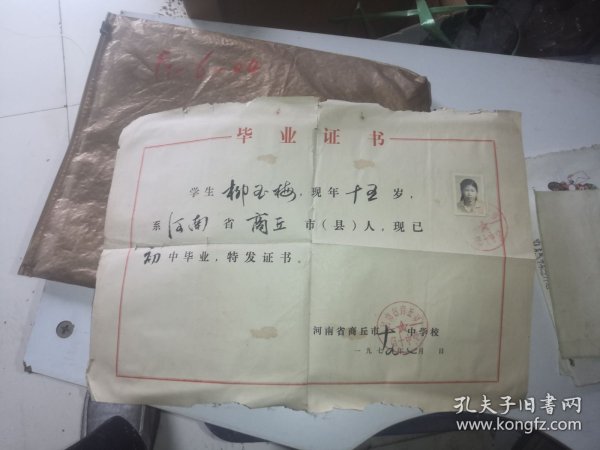 毕业证书
学生柳玉梅，现年十五岁，
系河南省商丘市(县)人，现已
初中毕业，特发证书。
河南省商丘市十 中学校
一九七 年 月 日
孔夫子旧书网
www.kongfz.com